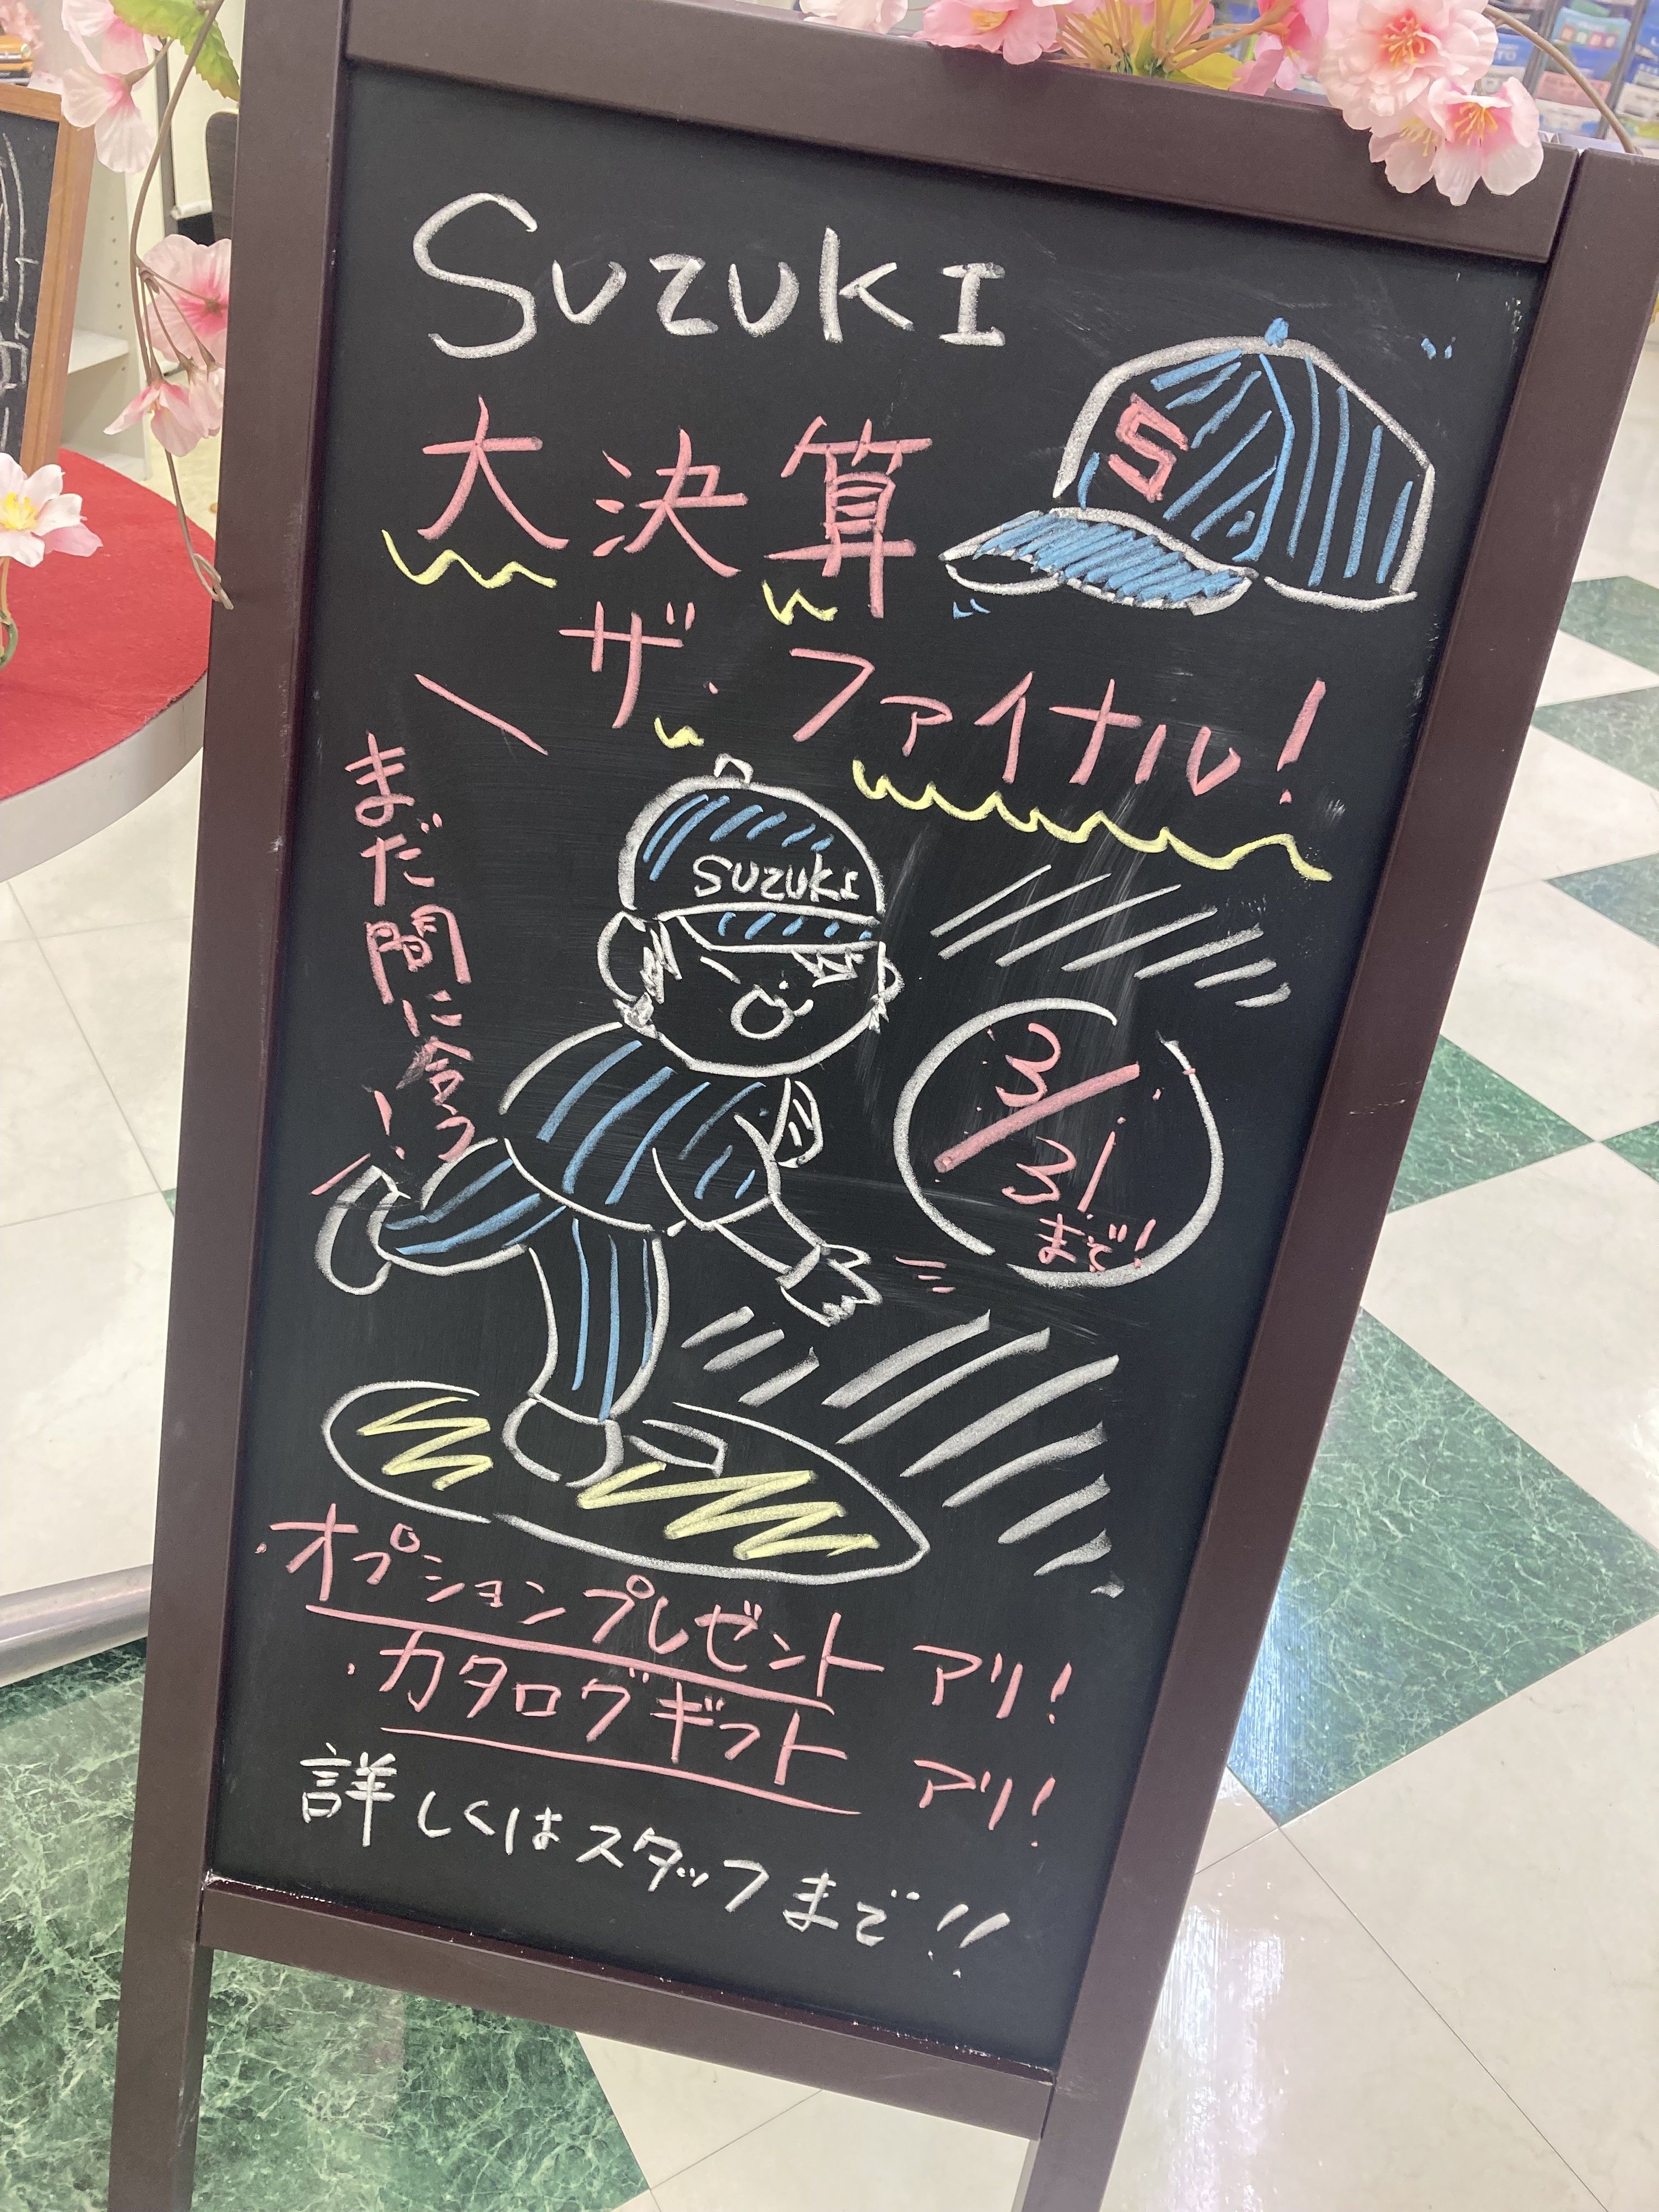 SUZUKI
大決算
ザ・ファイナル!
S
まだ間に合う!
SUZUKI
3/31
まで!
・オプションプレゼント アリ!
・カタログギフト アリ!
詳しくはスタッフまで!!